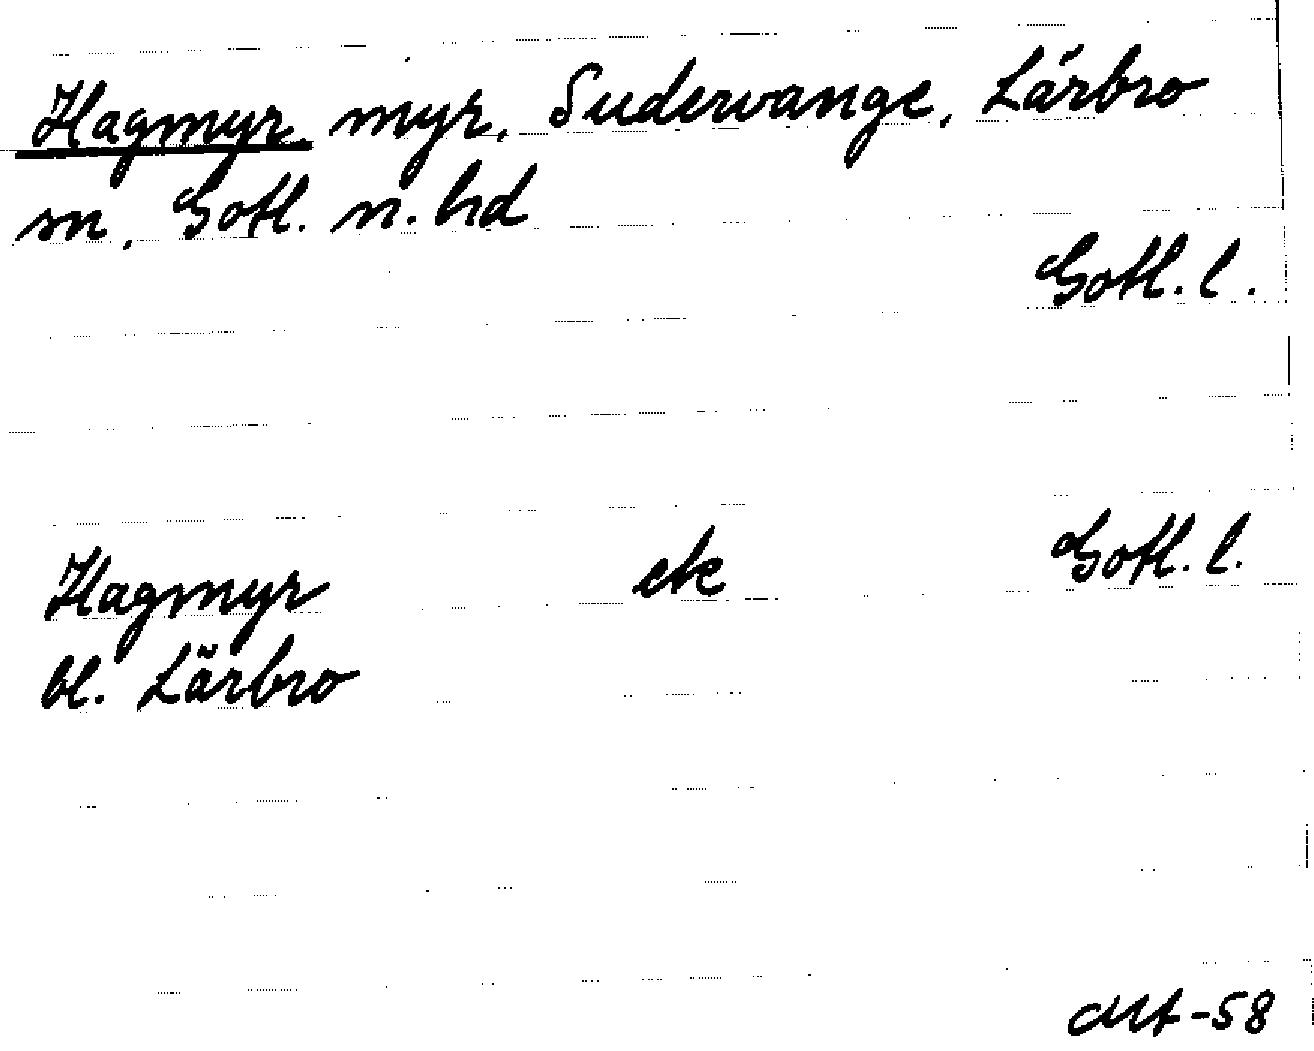 Hagmyr. myr, Sudervange, Lärbro
sn, Gotl. n. hd
Gotl. l.
Hagmyr ek Gotl. l.
bl. Lärbro